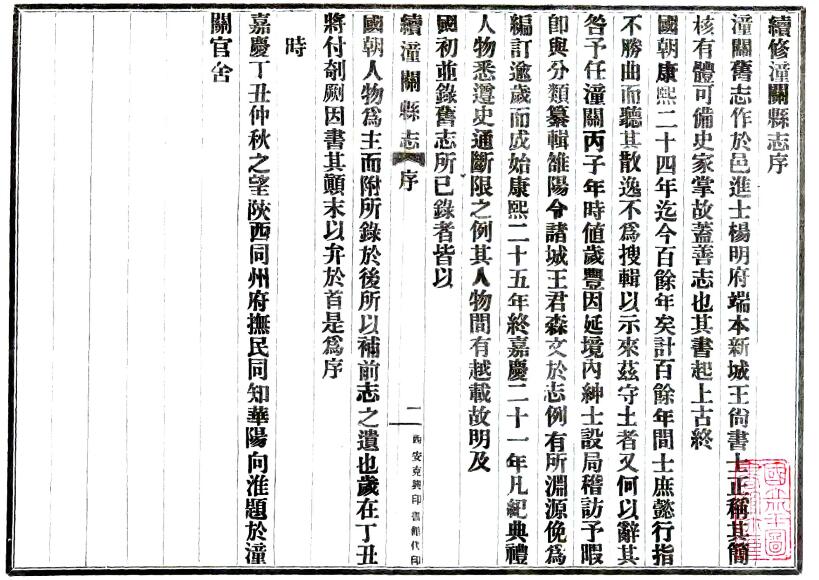 續修潼關縣志序
潼關舊志作於邑進士楊明府端本新城王尚書士正稱其簡
核有體可備史家掌故蓋善志也其書起上古終
國朝康熙二十四年迄今百餘年矣計百餘年間士庶懿行指
不勝曲而聽其散逸不爲搜輯以示來茲守土者又何以辭其
咎予任潼關丙子年時値歲豐因延境內紳士設局稽訪予暇
卽與分類纂輯雒陽令諸城王君森文於志例有所淵源俛爲
編訂逾歲而成始康熙二十五年終嘉慶二十一年凡紀典禮
人物悉遵史通斷限之例其人物間有越載故明及
國初並錄舊志所已錄者皆以
續潼關縣志 序 二 西安克興印書館代印
國朝人物爲主而附所錄於後所以補前志之遺也歲在丁丑
將付剞劂因書其顛末以弁於首是爲序
時
嘉慶丁丑仲秋之望陝西同州府撫民同知華陽向淮題於潼
關官舍